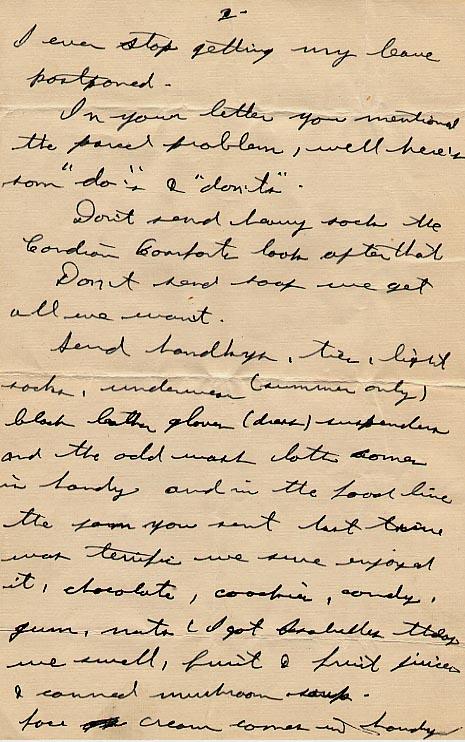 2-
I ever stop getting my leave
postponed.
In your letter you mentioned
the parcel problem, well here's
som "do's" & "don'ts".
Don't send heavy socks the
Condian Comforts look after that
Don't send soap we get
all we want.
Send handkys, ties, light
socks, underwear (summer only)
black leather gloves (dress) suspenders
and the odd wash cloth comes
in handy and in the food line
the jam you sent last time
was terrific we sure enjoyed
it, chocolate, coockies, candy,
gum, nuts (I got Isabelles today
swell, fruit & fruit juices
& canned mushroom soup.
face cream comes in handy